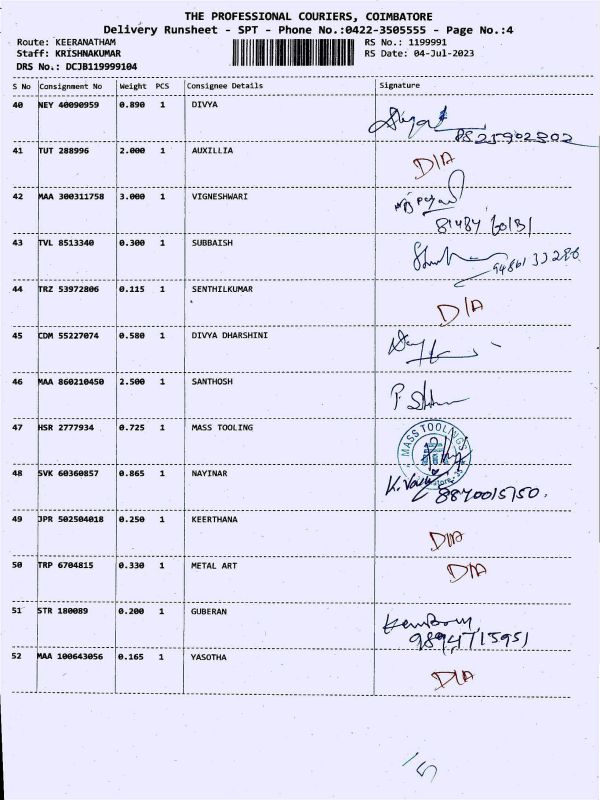 THE PROFESSIONAL COURIERS, COIMBATORE
Delivery Runsheet - SPT - Phone No.:0422-3505555 - Page No.:4
Route: KEERANATHAM RS No.: 1199991
Staff: KRISHNAKUMAR RS Date: 04-Jul-2023
DRS No.: DCJB119999104
S No Consignment No Weight PCS Consignee Details Signature
40 NEY 40090959 0.890 1 DIVYA
41 TUT 288996 2.000 1 AUXILLIA D/A
42 MAA 300311758 3.000 1 VIGNESHWARI
43 TVL 8513340 0.300 1 SUBBAISH
44 TRZ 53972806 0.115 1 SENTHILKUMAR D/A
45 CDM 55227074 0.580 1 DIVYA DHARSHINI
46 MAA 860210450 2.500 1 SANTHOSH
47 HSR 2777934 0.725 1 MASS TOOLING MASS TOOLINGS
48 SVK 60360857 0.865 1 NAYINAR
8870015150.
49 JPR 502504018 0.250 1 KEERTHANA D/A
50 TRP 6704815 0.330 1 METAL ART D/A
51 STR 180089 0.200 1 GUBERAN
9894715951
52 MAA 100643056 0.165 1 YASOTHA D/A